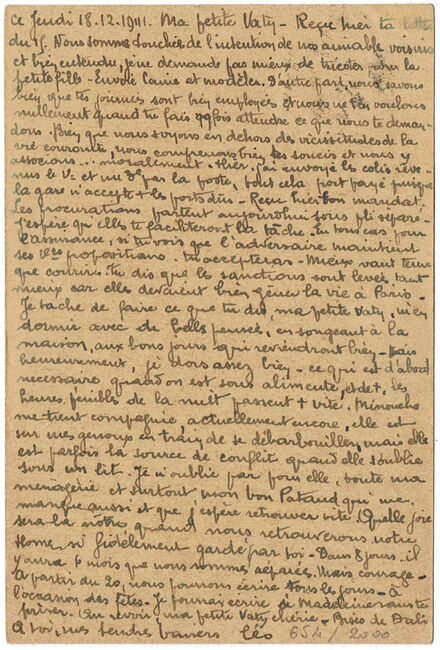 Ce Jeudi 18.12.1941. Ma petite Vaty - Reçu hier ta lettre
du 15. Nous sommes touchés de l'intention de nos aimables voisins
et bien entendu, je ne demande pas mieux de tricoter pour la
petite fille - Envoie laine et modèles. D'autre part, nous savons
bien que tes journées sont bien employées et nous ne t'en voulons
nullement quand tu fais qqfois attendre ce que nous te deman-
dons. Bien que nous soyons en dehors des vicissitudes de la
vie courante, nous comprenons bien tes soucis et nous y
associons... moralement. Hier, j'ai envoyé les colis reve-
nus le V. et un 3e par la poste, tout cela port payé puisque
la gare n'accepte + les ports dûs - Reçu hier bon mandat.
Les procurations partent aujourd'hui sous pli séparé -
J'espère qu'elles te faciliteront la tâche. En tous cas pour
l'assurance, si tu vois que l'adversaire maintient
ses propositions, tu accepteras - Mieux vaut tenir
que courir. Tu dis que les sanctions sont levées, tant
mieux car elles devaient bien gêner la vie à Paris -
Je tâche de faire ce que tu dis, ma petite Vaty, m'en
dormir avec de belles pensées, en songeant à la
maison, aux bons jours qui reviendront bien - Mais
heureusement, je dors assez bien - ce qui est d'abord
nécessaire quand on est sous alimenté, et de + les
heures pénibles de la nuit passent + vite. Minouche
me tient compagnie, actuellement encore, elle est
sur mes genoux en train de se débarbouiller, mais elle
est parfois la source de conflit quand elle s'oublie
sous un lit. Je n'oublie pas pour elle, toute ma
ménagerie et surtout mon bon Pataud qui me
manque aussi et que j'espère retrouver vite. Quelle joie
sera la nôtre quand nous retrouverons notre
Home, si fidèlement gardé par toi - Dans 8 jours, il
y aura 6 mois que nous sommes séparées. Mais courage -
A partir du 20, nous pourrons écrire tous les jours - à
l'occasion des fêtes - Je pourrai écrire à Madeleine sans te
priver. Au revoir ma petite Vaty chérie - Bises de
A toi, mes tendres baisers Léo 654 / 2000